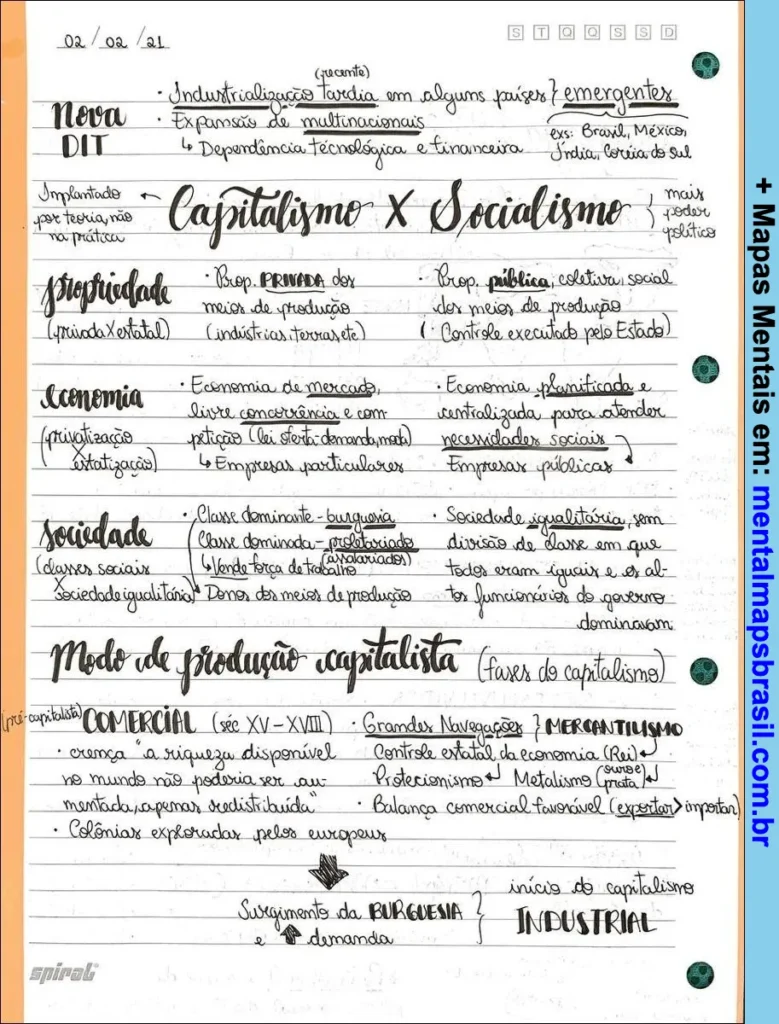 02 / 02 / 21
S T Q Q S S D
(recente)
• Industrialização tardia em alguns países } emergentes
Nova DIT
• Expansão de multinacionais
↳ Dependência tecnológica e financeira
exs: Brasil, México,
Índia, Coréia do Sul
Implantado
por teoria, não
na prática
Capitalismo X Socialismo
mais
poder
político
propriedade
(privada X estatal)
• Prop. PRIVADA dos
meios de produção
(indústrias, terras, etc)
• Prop. pública, coletiva, social
dos meios de produção
(• Controle executado pelo Estado)
economia
(privatização
X estatização)
• Economia de mercado,
livre concorrência e com
petição (lei oferta-demanda, moda)
↳ Empresas particulares
• Economia planificada e
centralizada para atender
necessidades sociais
Empresas públicas
sociedade
(classes sociais
X sociedade igualitária)
• Classe dominante - burguesia
Classe dominada - proletariado
(assalariados)
↳ Vende força de trabalho
Donos dos meios de produção
• Sociedade igualitária, sem
divisão de classe em que
todos eram iguais e os al-
tos funcionários do governo
dominavam
Modo de produção capitalista (fases do capitalismo)
(pré-capitalista) COMERCIAL (séc XV - XVIII)
• crença "a riqueza disponível
no mundo não poderia ser au-
mentada, apenas redistribuída"
• Colônias exploradas pelos europeus
• Grandes Navegações } MERCANTILISMO
Controle estatal da economia (Rei)
Protecionismo Metalismo (ouro e prata)
• Balança comercial favorável (exportar > importar)
Surgimento da BURGUESIA
e ↑ demanda
início do capitalismo
INDUSTRIAL
spiral
+ Mapas Mentais em: mentalmapsbrasil.com.br